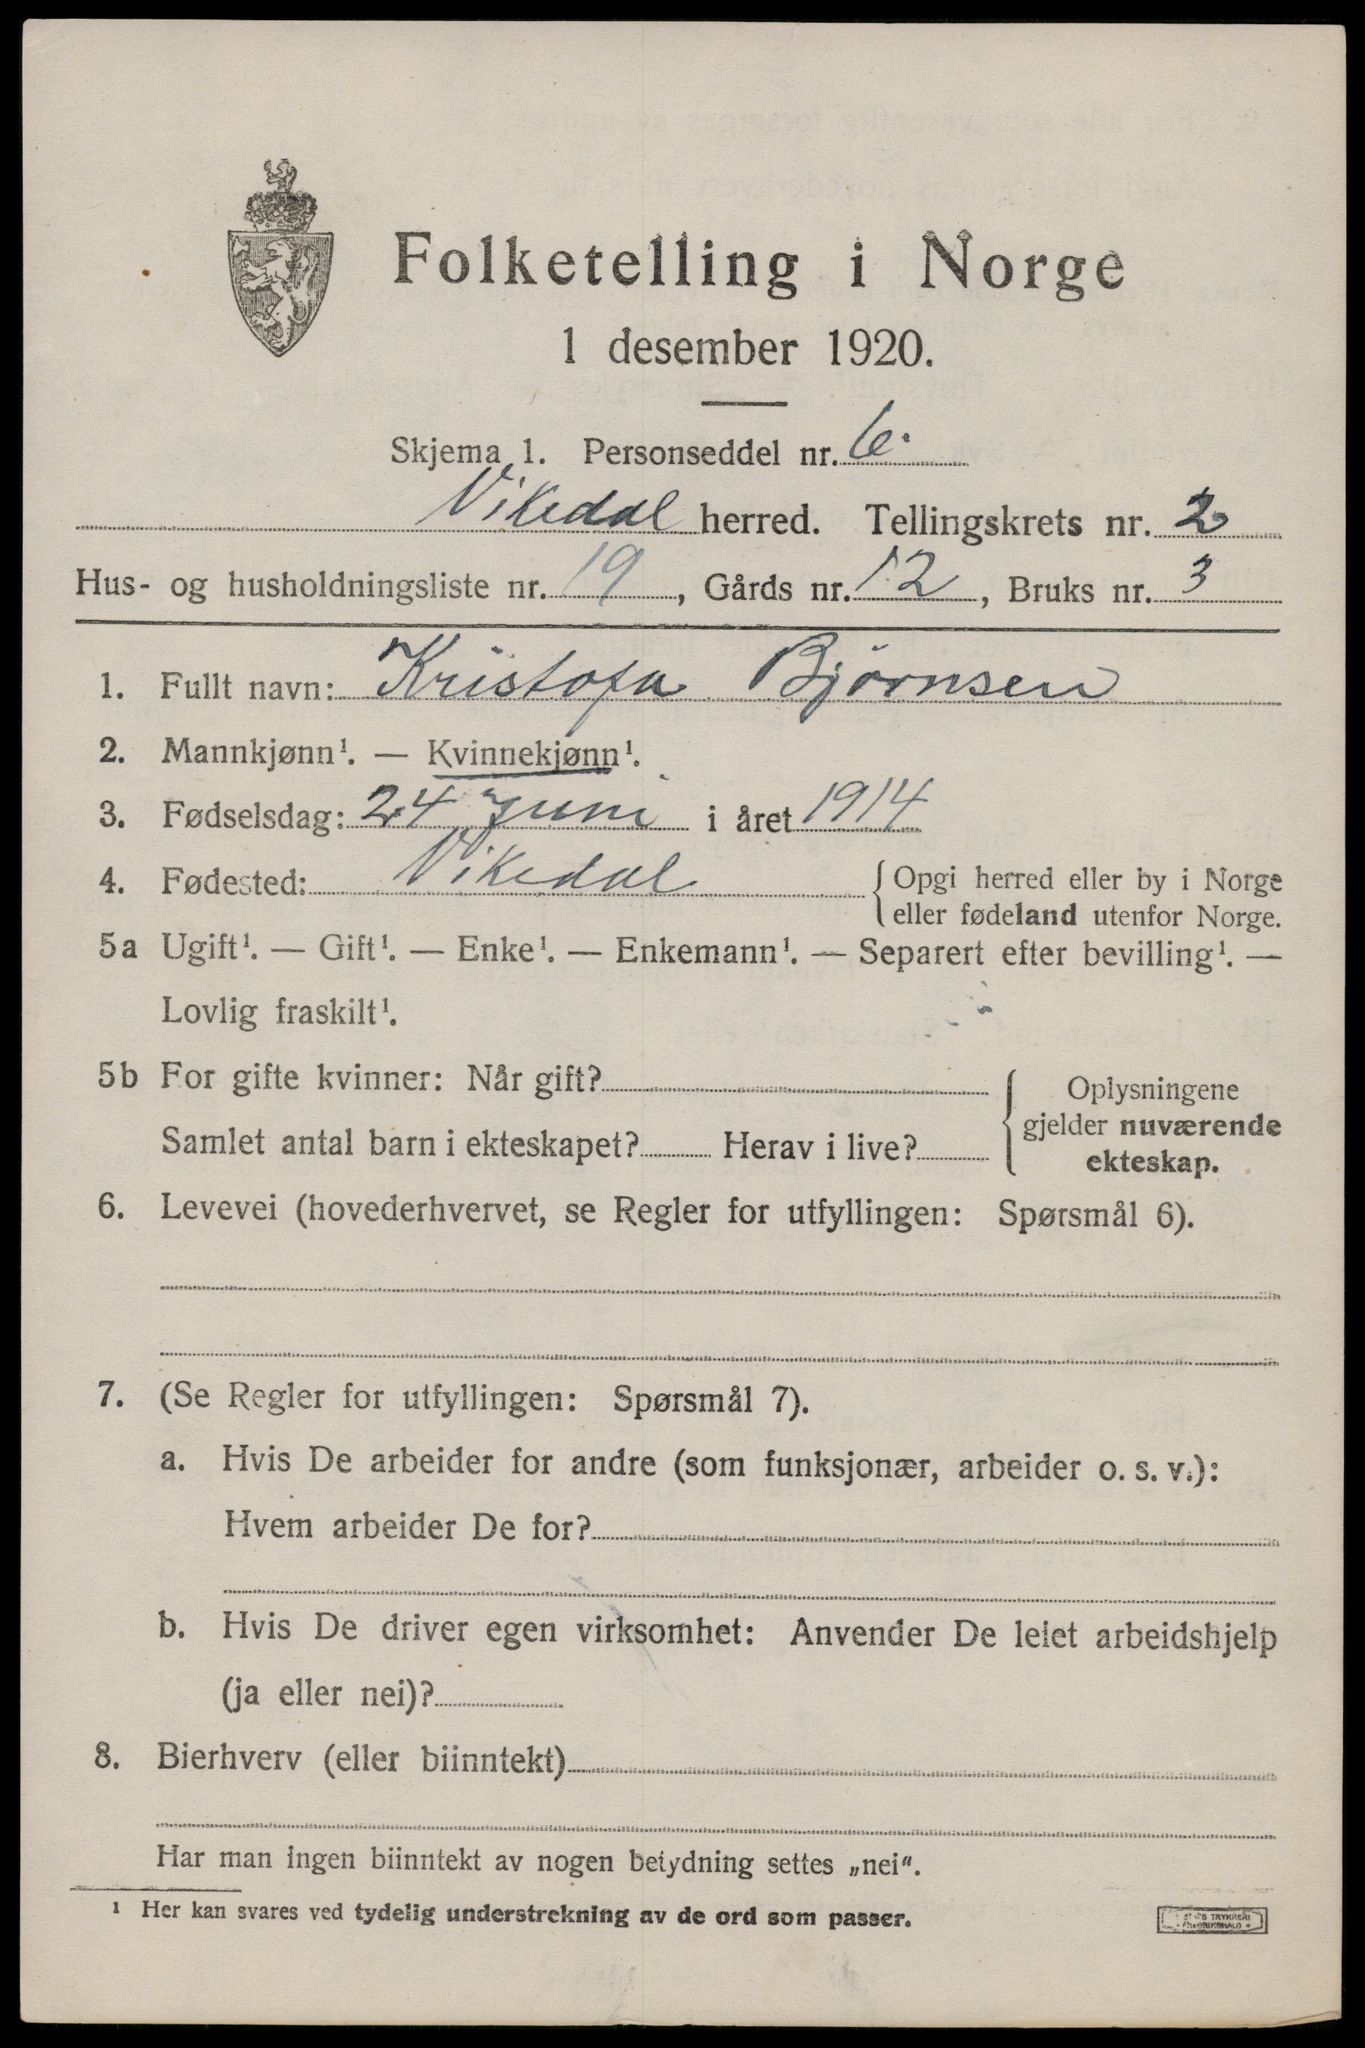 Folketelling i Norge
1 desember 1920.
Skjema 1. Personseddel nr. 6.
Vikedal herred. Tellingskrets nr. 2
Hus- og husholdningsliste nr. 19, Gårds nr. 12, Bruks nr. 3
1. Fullt navn: Kristofa Bjørnsen
2. Mannkjønn¹. — Kvinnekjønn¹.
3. Fødselsdag: 24 juni i året 1914
4. Fødested: Vikedal {Opgi herred eller by i Norge
eller fødeland utenfor Norge.
5a Ugift¹. — Gift¹. — Enke¹. — Enkemann¹. — Separert efter bevilling¹. —
Lovlig fraskilt¹.
5b For gifte kvinner: Når gift?
Samlet antal barn i ekteskapet? Herav i live?
{Oplysningene
gjelder nuværende
ekteskap.
6. Levevei (hovederhvervet, se Regler for utfyllingen: Spørsmål 6).
7. (Se Regler for utfyllingen: Spørsmål 7).
a. Hvis De arbeider for andre (som funksjonær, arbeider o. s. v.):
Hvem arbeider De for?
b. Hvis De driver egen virksomhet: Anvender De leiet arbeidshjelp
(ja eller nei)?
8. Bierhverv (eller biinntekt)
Har man ingen biinntekt av nogen betydning settes „nei“.
¹ Her kan svares ved tydelig understrekning av de ord som passer.
TRYKKERI